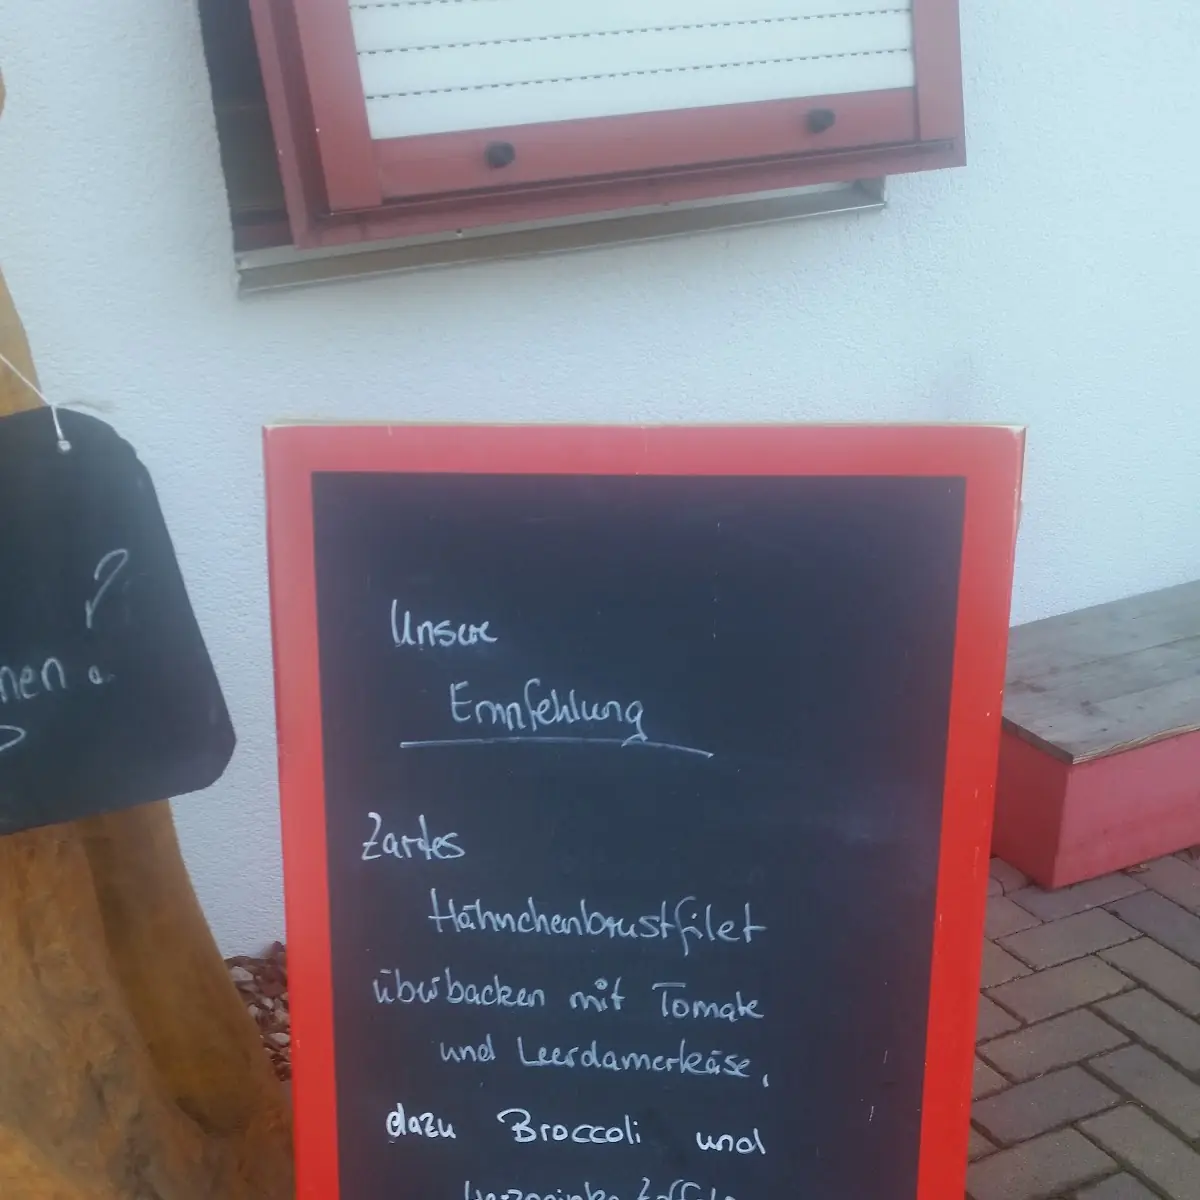 nen
Unsere
Empfehlung
Zartes
Hähnchenbrustfilet
überbacken mit Tomate
und Leerdamerkäse,
dazu Broccoli und